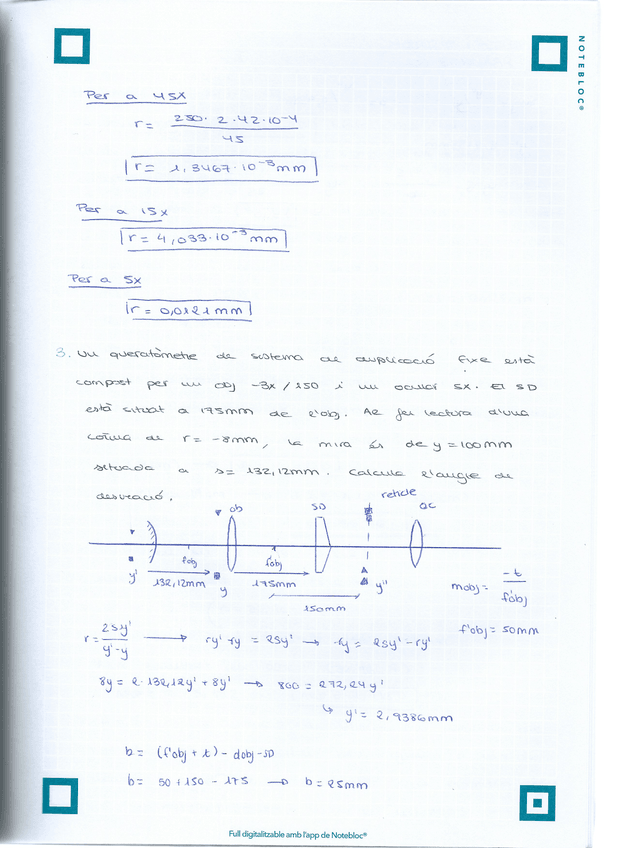 NOTEBLOC®
Per a 45x
r = 250 · 2.42·10⁻⁴
45
r = 1,3467·10⁻³ mm
Per a 15x
r = 4,033·10⁻³ mm
Per a 5x
r = 0,0121 mm
3. Un queratòmetre de sistema de duplicació fixe està
compost per un obj -3x/150 i un ocular 5x. El SD
està situat a 175mm de l'obj. Al fer lectura d'una
còrnia de r = -8mm, la mira és de y = 100mm
situada a s = 132,12mm. Calcula l'angle de
desviació.
reticle
Ob SD OC
y' 132,12mm f'obj y f'obj 175mm y''
150mm
mobj = -t / f'obj
f'obj = 50mm
r = 2sy' / y'-y → ry' - ry = 2sy' → -ry = 2sy' - ry'
8y = 2·132,12y' + 8y' → 800 = 272,24y'
↳ y' = 2,9386mm
b = (f'obj + t) - dobj-SD
b = 50 + 150 - 175 → b = 25mm
Full digitalitzable amb l'app de Notebloc®